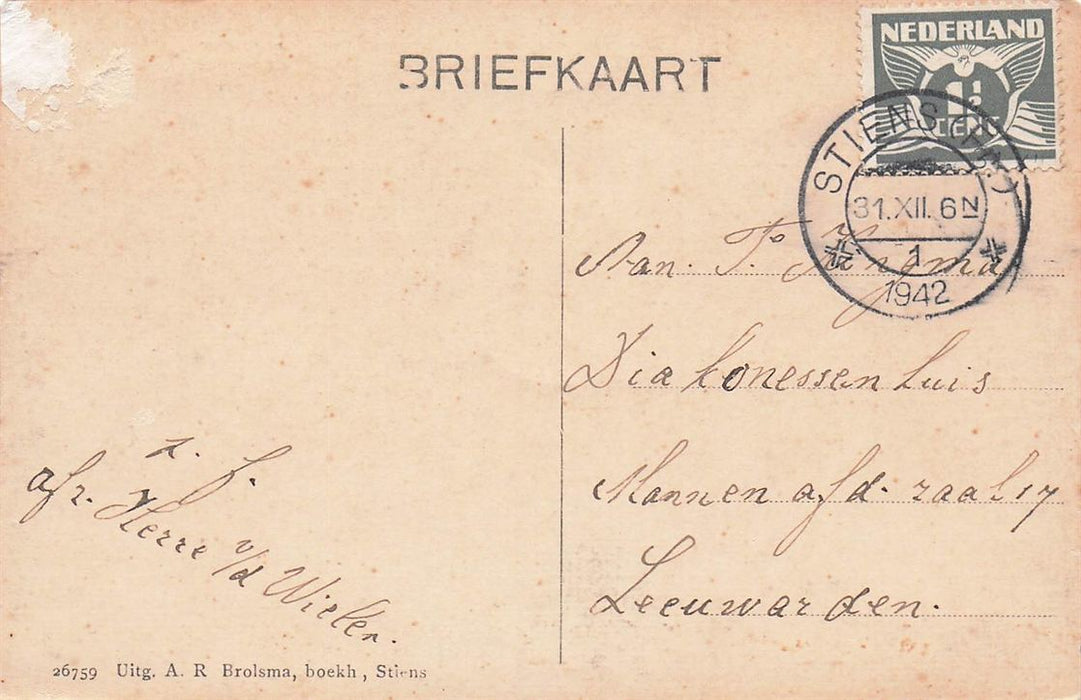 BRIEFKAART
NEDERLAND
1½
CENT
STIENS (FR.)
31.XII. 6N
1
1942
Aan. T.
Diakonessenhuis
Mannen afd. zaal 17
Leeuwarden.
z. f.
afz. Herre v/d Wielen.
26759 Uitg. A. R Brolsma, boekh, Stiens